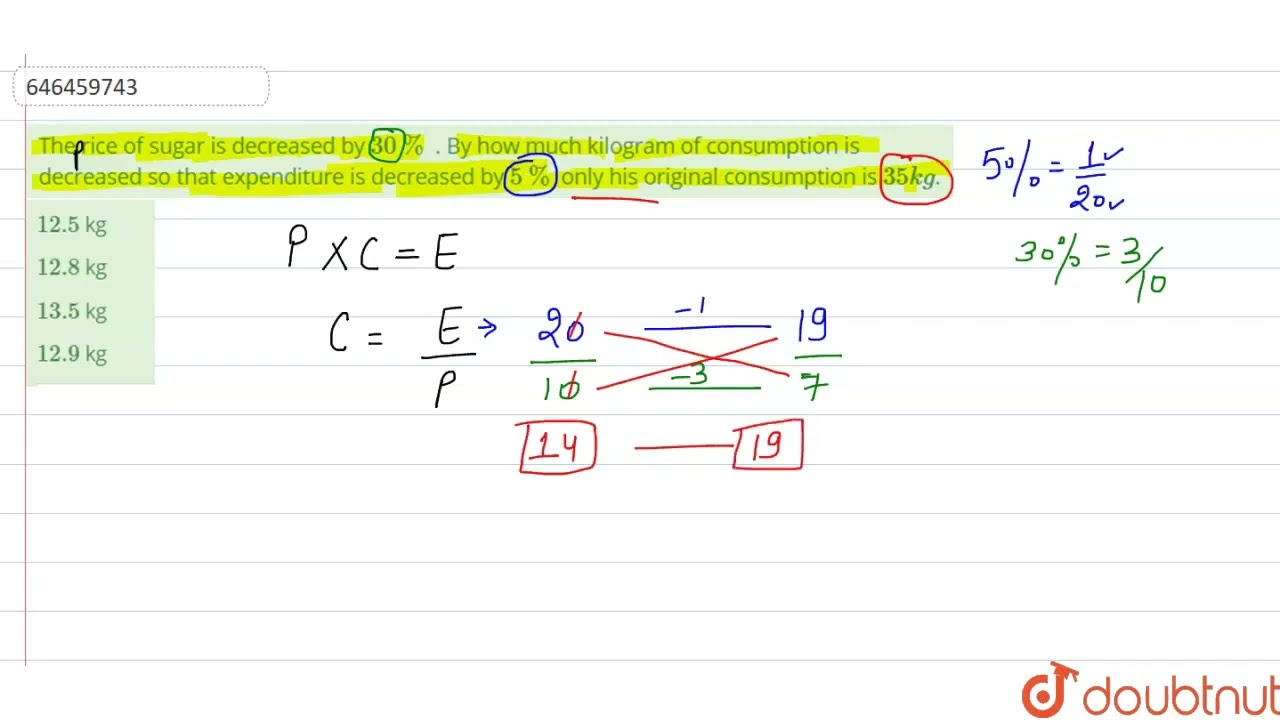 646459743
The price of sugar is decreased by 30 % . By how much kilogram of consumption is
decreased so that expenditure is decreased by 5 % only his original consumption is 35kg.
12.5 kg
12.8 kg
13.5 kg
12.9 kg
5% = 1/20
30% = 3/10
P X C = E
C = E/P → 20/10 -1 -3 19/7
14 — 19
doubtnut